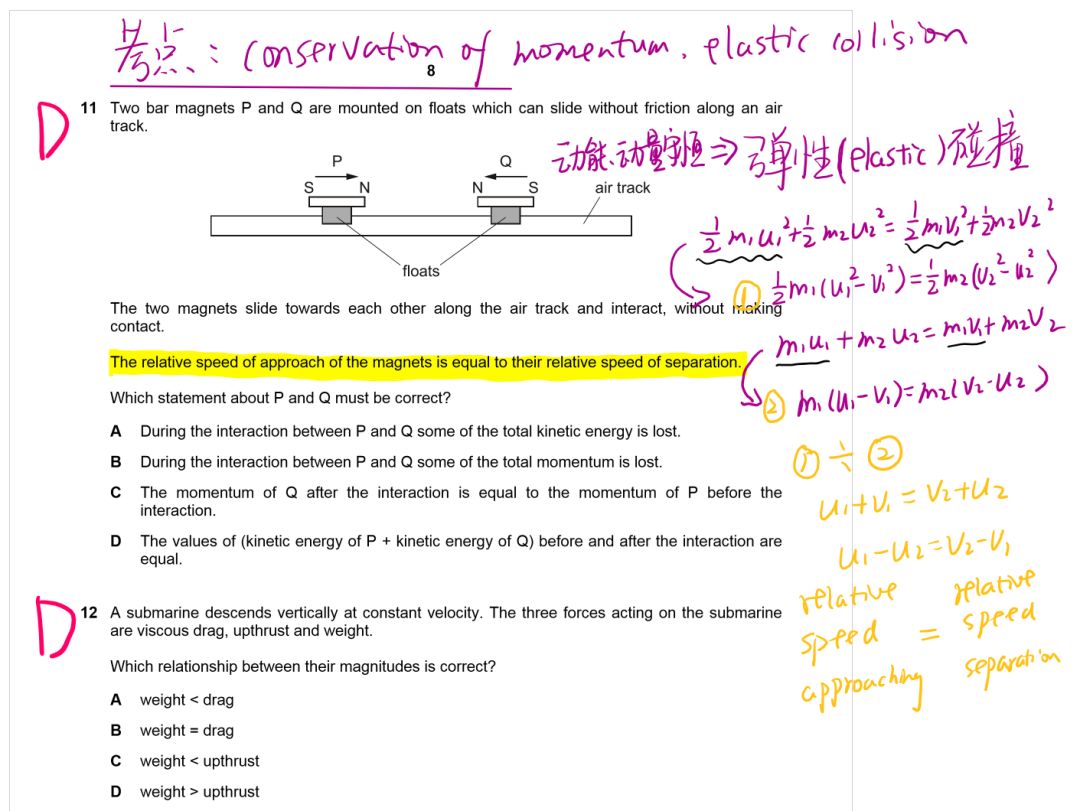 考点: conservation of momentum. elastic collision
8
D
11 Two bar magnets P and Q are mounted on floats which can slide without friction along an air
track.
动能、动量守恒 ⇒ 弹性(elastic)碰撞
P
Q
S N N S air track
floats
½m₁u₁² + ½m₂u₂² = ½m₁v₁² + ½m₂v₂²
① ½m₁(u₁² - v₁²) = ½m₂(v₂² - u₂²)
The two magnets slide towards each other along the air track and interact, without making
contact.
m₁u₁ + m₂u₂ = m₁v₁ + m₂v₂
The relative speed of approach of the magnets is equal to their relative speed of separation.
② m₁(u₁ - v₁) = m₂(v₂ - u₂)
Which statement about P and Q must be correct?
A During the interaction between P and Q some of the total kinetic energy is lost.
B During the interaction between P and Q some of the total momentum is lost.
C The momentum of Q after the interaction is equal to the momentum of P before the
interaction.
D The values of (kinetic energy of P + kinetic energy of Q) before and after the interaction are
equal.
① ÷ ②
u₁ + v₁ = v₂ + u₂
u₁ - u₂ = v₂ - v₁
relative relative
speed = speed
approaching separation
D
12 A submarine descends vertically at constant velocity. The three forces acting on the submarine
are viscous drag, upthrust and weight.
Which relationship between their magnitudes is correct?
A weight < drag
B weight = drag
C weight < upthrust
D weight > upthrust